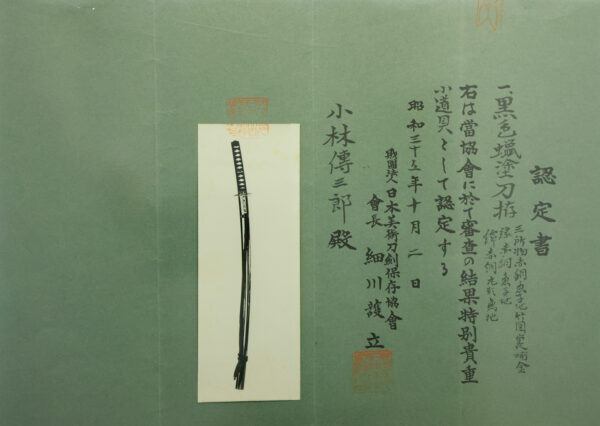 認定書
一、黒色蝋塗刀拵
三所物赤銅魚子地
縁赤銅魚子地
鐔赤銅
右は當協會に於て審査の結果特別貴重
小道具として認定する
昭和三十五年十月二日
財團法人日本美術刀劍保存協會
會長 細川護立
小林傳三郎殿